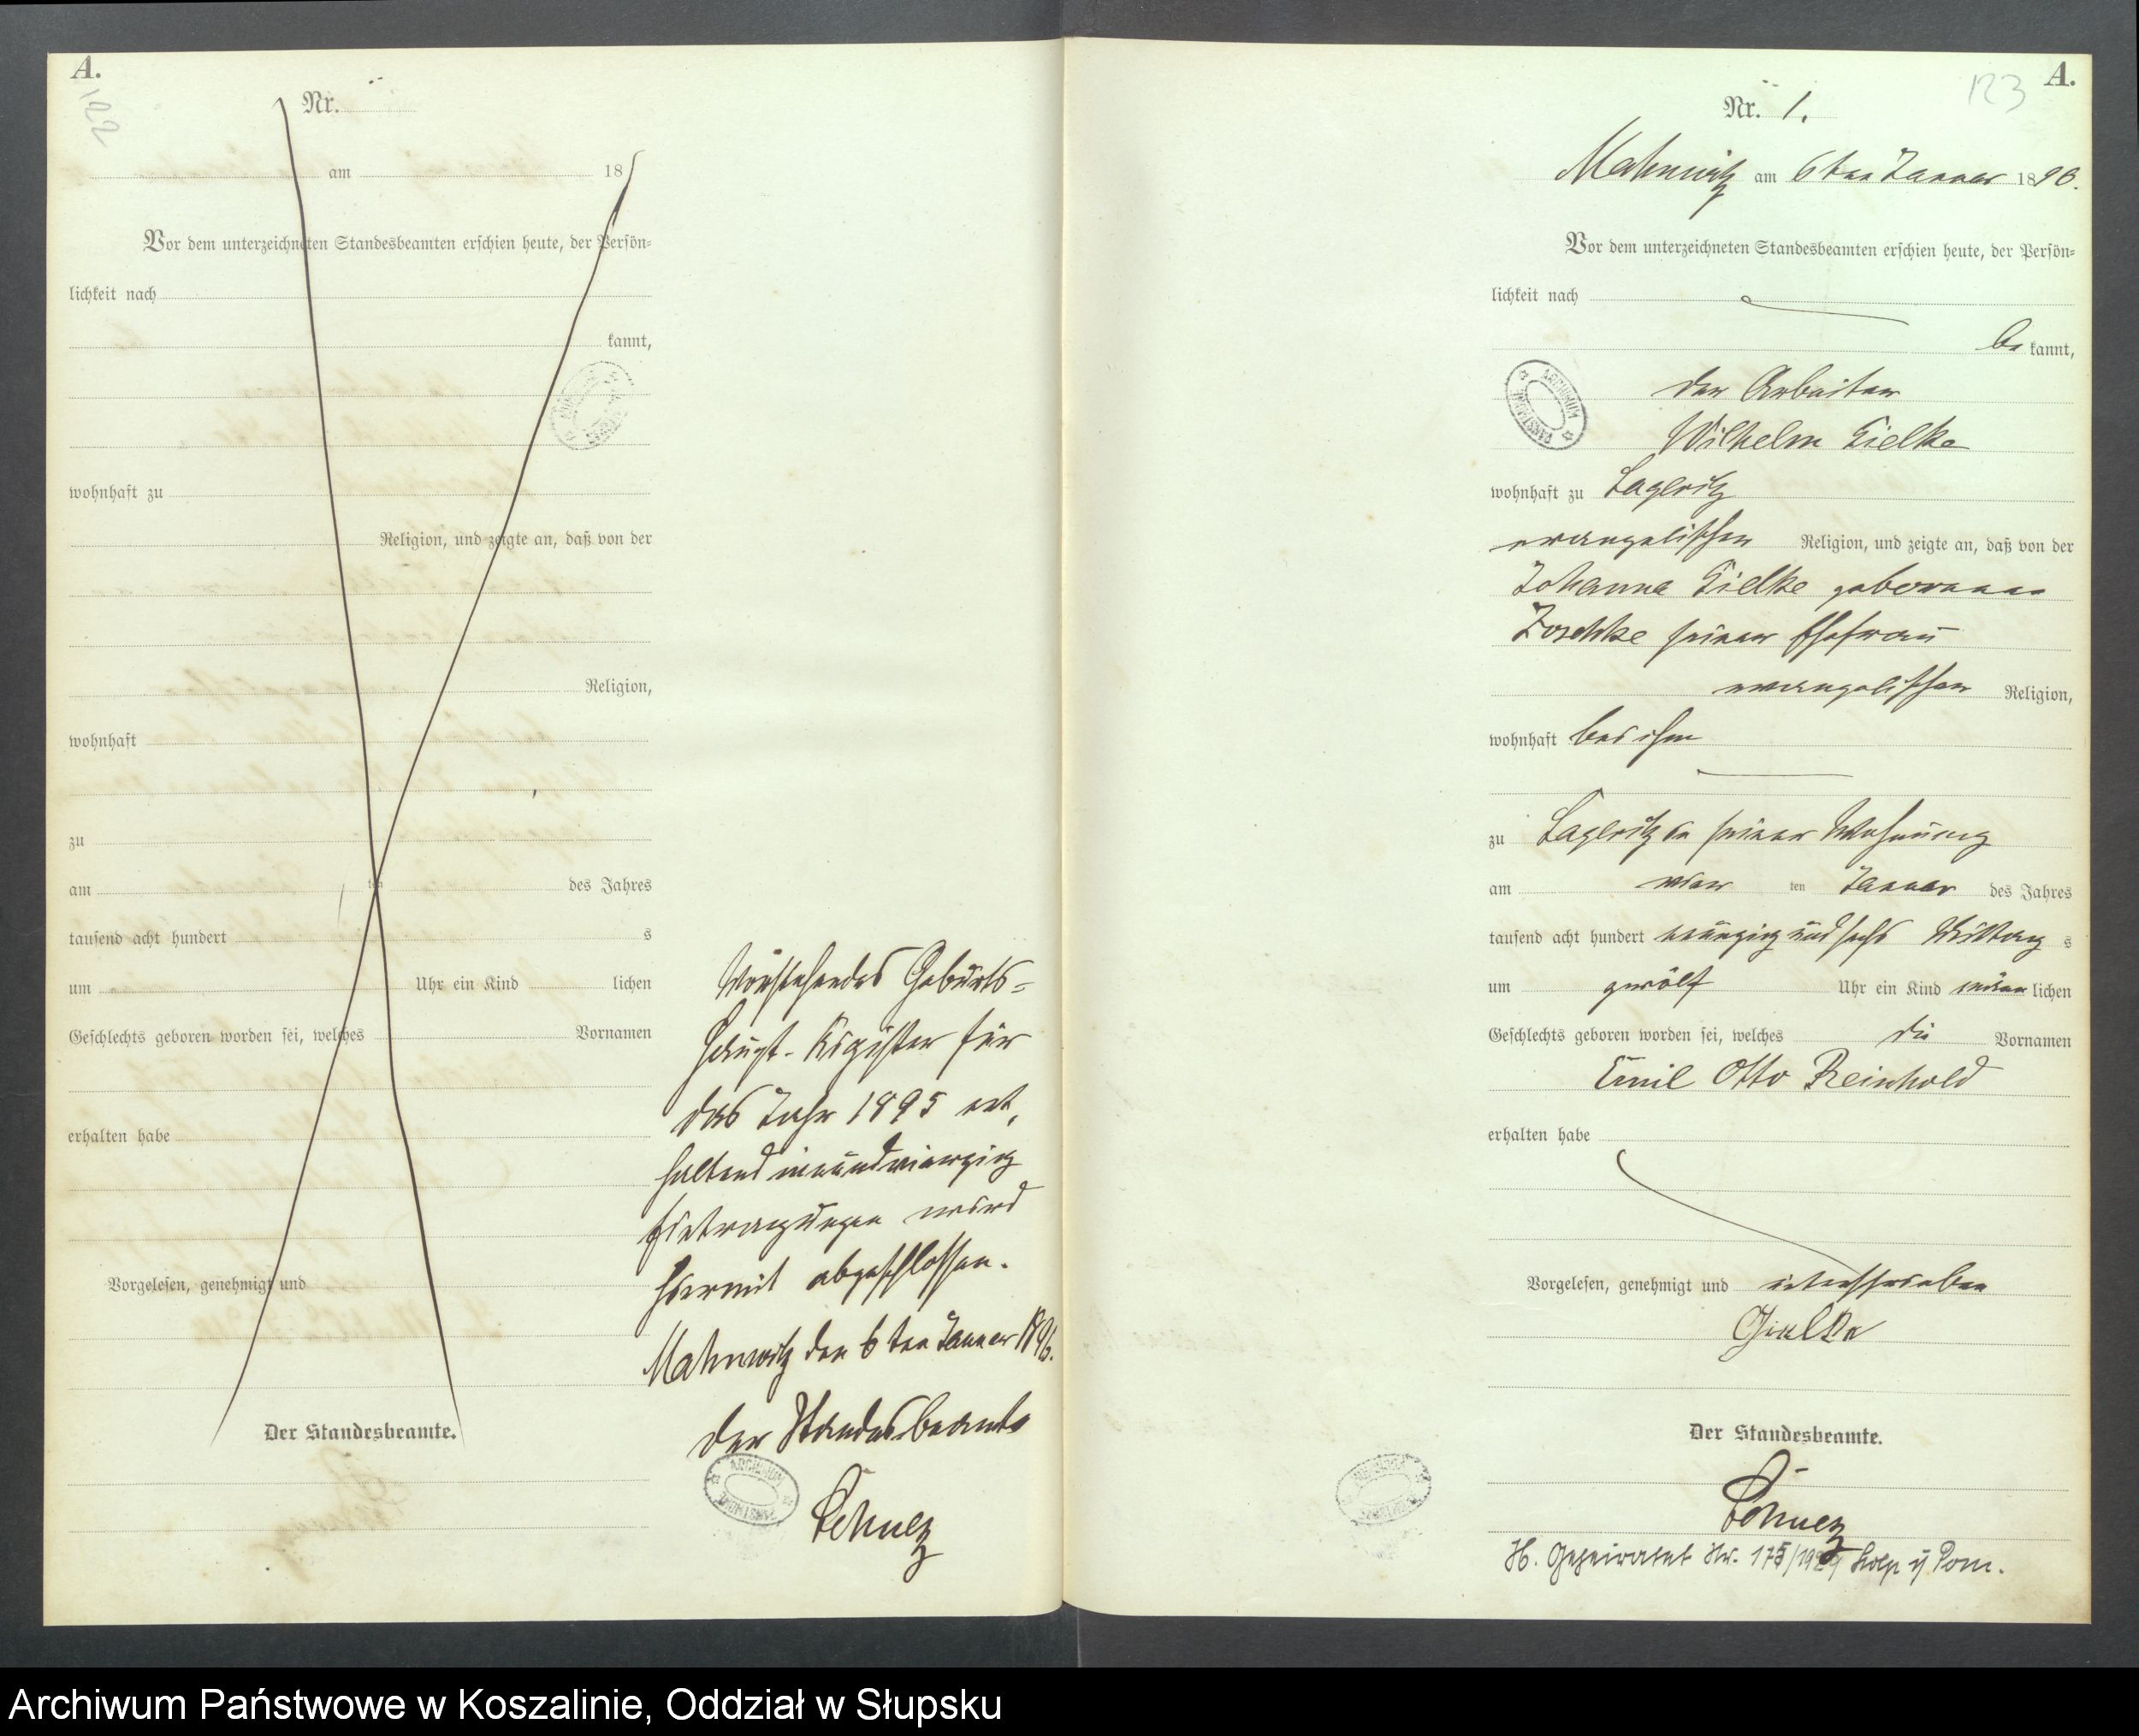 A.
122
Nr.
am 18
Vor dem unterzeichneten Standesbeamten erschien heute, der Persön=
lichkeit nach
kannt,
wohnhaft zu
Religion, und zeigte an, daß von der
Religion,
wohnhaft
zu
am ten des Jahres
tausend acht hundert s
um Uhr ein Kind lichen
Geschlechts geboren worden sei, welches Vornamen
erhalten habe
Vorgelesen, genehmigt und
Der Standesbeamte.
Vorstehendes Geburts=
Haupt-Register für
das Jahr 1895 ent,
haltend
Eintragungen wird
hiermit abgeschlossen.
Mahnwitz den 6ten Januar 1896.
Der Standesbeamte
Schulz
A.
123
Nr. 1.
Mahnwitz am 6ten Januar 1896.
Vor dem unterzeichneten Standesbeamten erschien heute, der Persön=
lichkeit nach
be kannt,
der Arbeiter
Wilhelm Gielke
wohnhaft zu
evangelischer Religion, und zeigte an, daß von der
Johanna Gielke geborenen
Zoschke seiner Ehefrau
evangelischer Religion,
wohnhaft bei ihm
zu in seiner Wohnung
am vier ten Januar des Jahres
tausend acht hundert neunzig und sechs Mittag s
um zwölf Uhr ein Kind männlichen
Geschlechts geboren worden sei, welches die Vornamen
Emil Otto Reinhold
erhalten habe
Vorgelesen, genehmigt und unterschrieben
Gielke
Der Standesbeamte.
Schulz
H. Geheiratet Nr. Stolp i/ Pom.
ARCHIWUM PAŃSTWOWE
Archiwum Państwowe w Koszalinie, Oddział w Słupsku